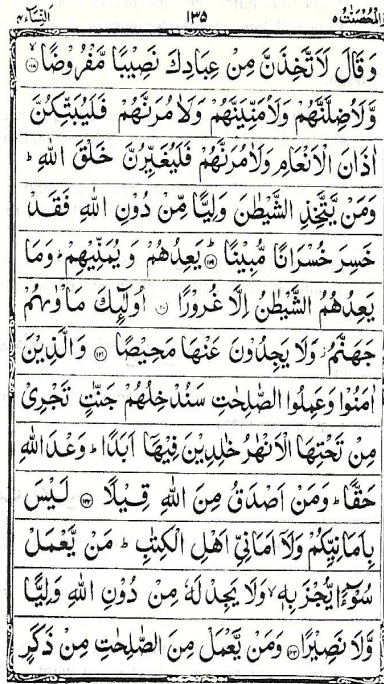 النساء ٤ ١٣٥ والمحصنت ٥
وَقَالَ لَاَتَّخِذَنَّ مِنْ عِبَادِكَ نَصِيْبًا مَّفْرُوْضًا ۙ ﴿۱۱۸﴾
وَّلَاُضِلَّنَّهُمْ وَلَاُمَنِّيَنَّهُمْ وَلَاٰمُرَنَّهُمْ فَلَيُبَتِّكُنَّ
اٰذَانَ الْاَنْعَامِ وَلَاٰمُرَنَّهُمْ فَلَيُغَيِّرُنَّ خَلْقَ اللهِ ؕ
وَمَنْ يَّتَّخِذِ الشَّيْطٰنَ وَلِيًّا مِّنْ دُوْنِ اللهِ فَقَدْ
خَسِرَ خُسْرَانًا مُّبِيْنًا ؕ ﴿۱۱۹﴾ يَعِدُهُمْ وَ يُمَنِّيْهِمْ ؕ وَمَا
يَعِدُهُمُ الشَّيْطٰنُ اِلَّا غُرُوْرًا ﴿۱۲۰﴾ اُولٰٓئِكَ مَاْوٰىهُمْ
جَهَنَّمُ ؗ وَلَا يَجِدُوْنَ عَنْهَا مَحِيْصًا ﴿۱۲۱﴾ وَالَّذِيْنَ
اٰمَنُوْا وَعَمِلُوا الصّٰلِحٰتِ سَنُدْخِلُهُمْ جَنّٰتٍ تَجْرِىْ
مِنْ تَحْتِهَا الْاَنْهٰرُ خٰلِدِيْنَ فِيْهَاۤ اَبَدًا ؕ وَعْدَ اللهِ
حَقًّا ؕ وَمَنْ اَصْدَقُ مِنَ اللهِ قِيْلًا ﴿۱۲۲﴾ لَيْسَ
بِاَمَانِيِّكُمْ وَلَاۤ اَمَانِىِّ اَهْلِ الْكِتٰبِ ؕ مَنْ يَّعْمَلْ
سُوْٓءًا يُّجْزَ بِهٖ ۙ وَلَا يَجِدْ لَهٗ مِنْ دُوْنِ اللهِ وَلِيًّا
وَّلَا نَصِيْرًا ﴿۱۲۳﴾ وَمَنْ يَّعْمَلْ مِنَ الصّٰلِحٰتِ مِنْ ذَكَرٍ